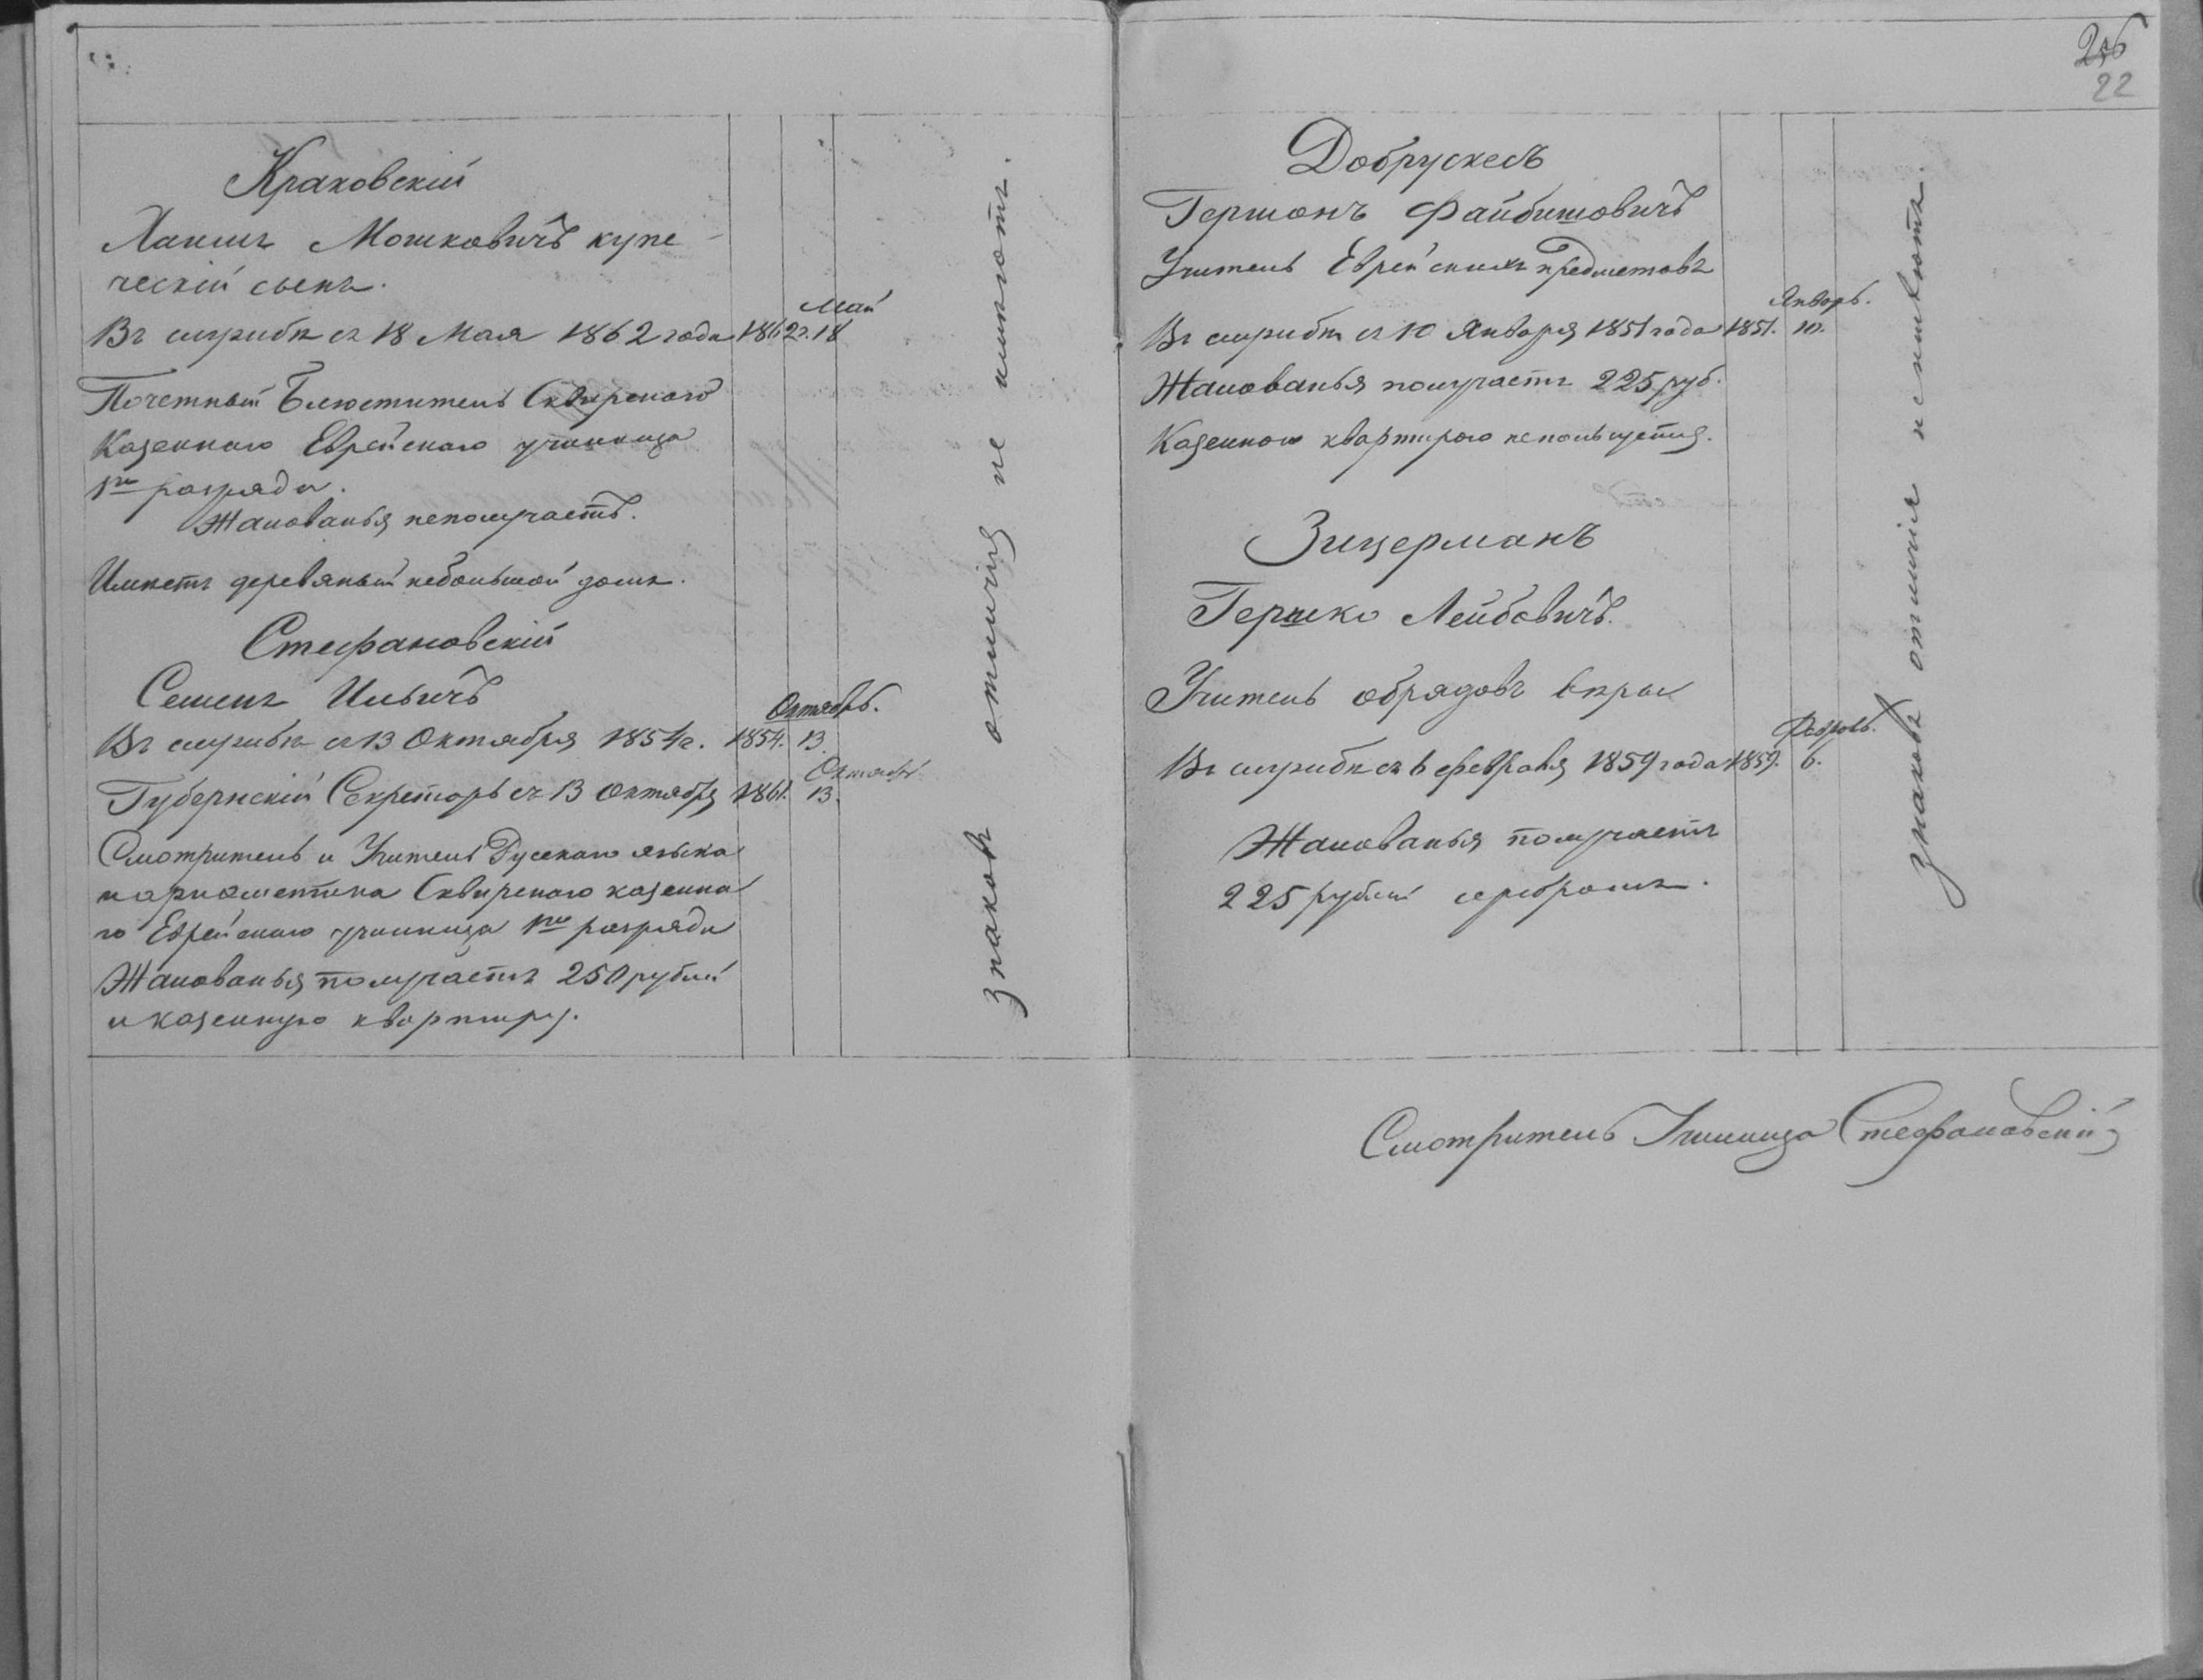 Краковскій
Хаимъ Мошковичъ купе-
ческій сынъ.
Май
Въ службѣ съ 18 Мая 1862 года 1862г. 18
Почетный Блюститель Сквирскаго
Казеннаго Еврейскаго училища
1го разряда.
Жалованья неполучаетъ.
Имѣетъ деревяный небольшой домъ.
Стефановскій
Семенъ Ильичъ
Октябрь.
Въ службѣ съ 13 Октября 1854г. 1854. 13.
Октябрь
Губернскій Секретарь съ 13 Октября 1861. 13.
Смотритель и Учитель Русскаго языка
и ариѳметики Сквирскаго казенна
го Еврейскаго училища 1го разряда
Жалованья получаетъ 250 рублей
и казенную квартиру.
знаковъ отличія не имѣютъ.
22
Добрускесъ
Гершонъ Файбишовичъ
Учитель Еврейскихъ предметовъ
Январь.
Въ службѣ съ 10 Января 1851 года 1851. 10.
Жалованья получаетъ 225 руб.
Казенною квартирою непользуется.
Зицерманъ
Гершко Лейбовичъ.
Учитель обрядовъ вѣры
Февраль.
Въ службѣ съ 6 февраля 1859 года 1859. 6.
Жалованья получаетъ
225 рублей серебромъ.
знаковъ отличія неимѣютъ.
Смотритель Училища Стефановскій